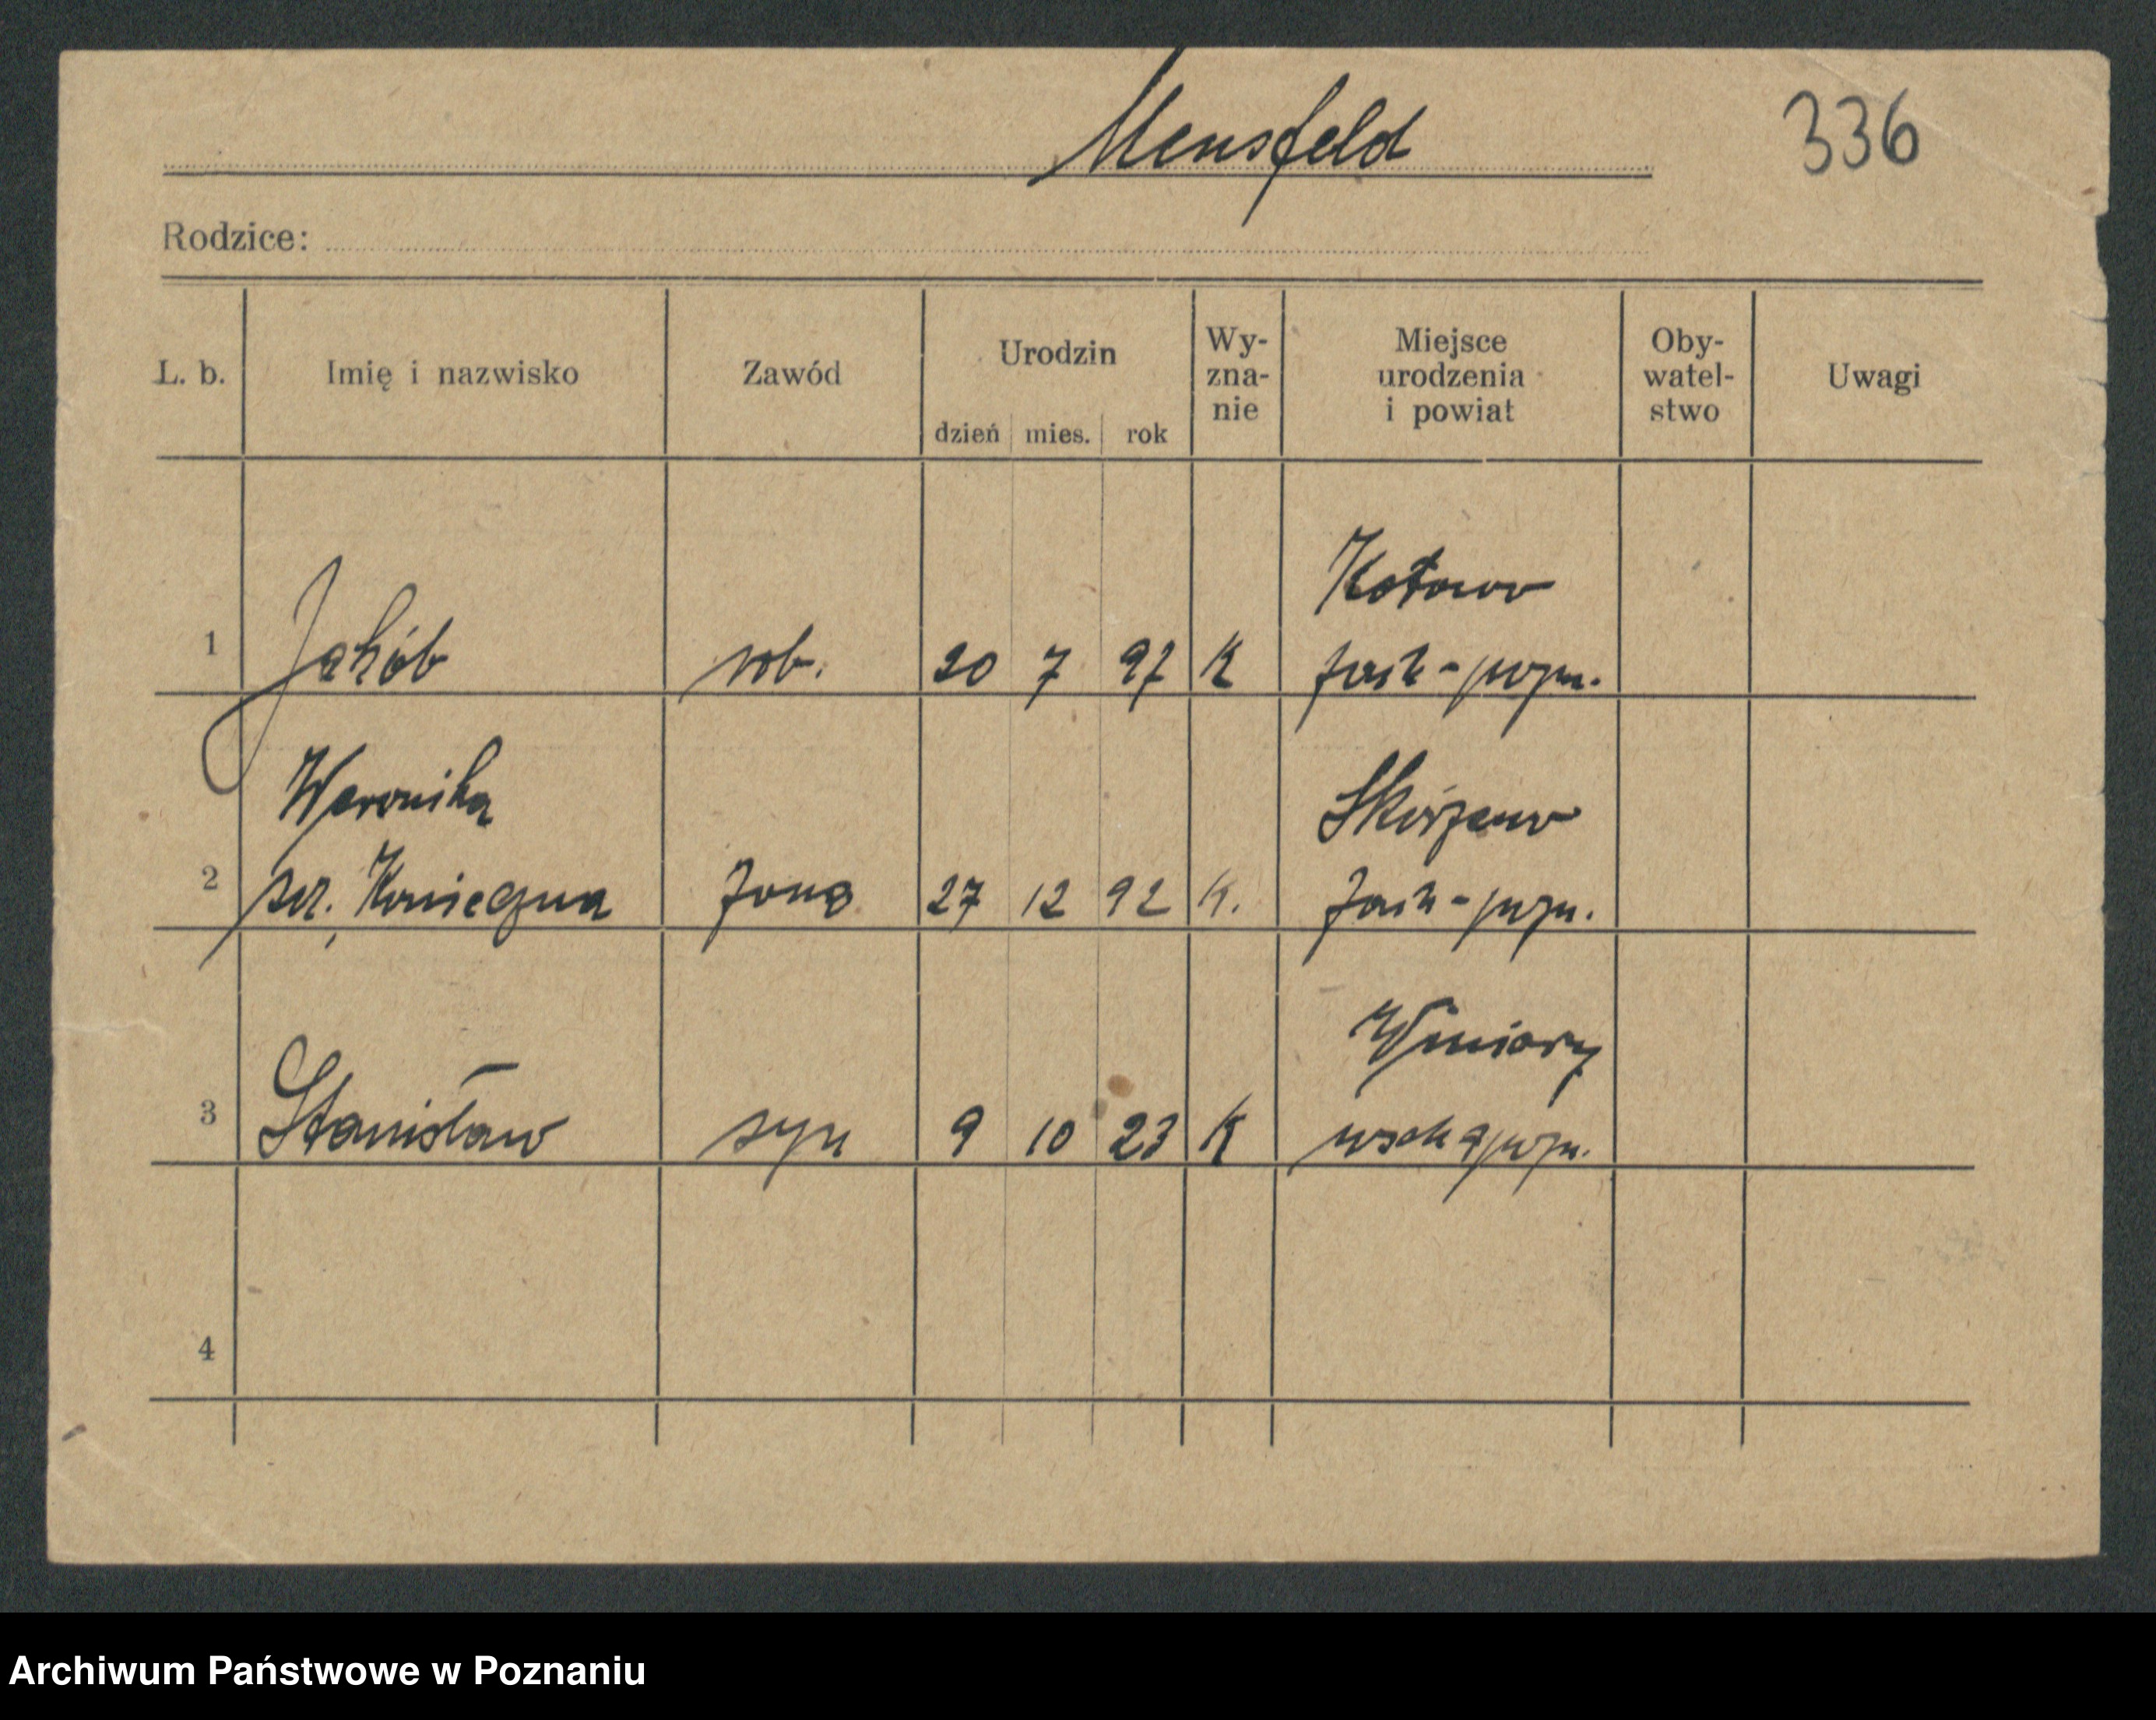 Mensfeld
336
Rodzice:
L. b. Imię i nazwisko Zawód Urodzin dzień mies. rok Wy- zna- nie Miejsce urodzenia i powiat Oby- watel- stwo Uwagi
Kotowo
1 Jakób rob. 20 7 97 K
Weronika Skórzewo
2 Konieczna żona 27 12 92 K.
Winiary
3 Stanisław syn 9 10 23 K
4
Archiwum Państwowe w Poznaniu